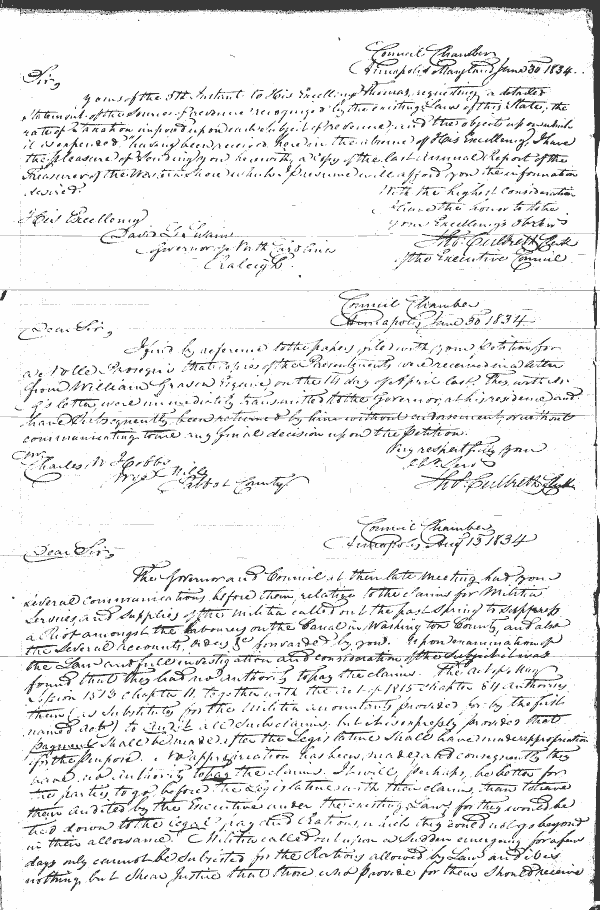 Council Chamber
Annapolis Maryland June 30 1834.
Sir,
Yours of the 5th Instant to His Excellency Thomas, requesting a detailed
statement of the sources of revenue recognized by the existing Laws of this State, the
rate of taxation imposed upon each subject of revenue, and the objects upon which
it is expended, having been received here in the absence of His Excellency, I have
the pleasure of sending you herewith, a copy of the last annual Report of the
Treasurer of the Western Shore which I presume will afford you the information
desired.
With the highest Consideration
I have the honor to be
your Excellency's obt Serv
His Excellency
David L. Swain
Governor of North Carolina
Raleigh.
Tho. Culbreth Clk
of the Executive Council
Council Chamber
Annapolis, June 30 1834
Dear Sir,
I find by reference to the papers filed with your Petition for
a Nolle Prosequi that copies of the Presentments were received in a letter
from William Grason Esquire on the 14 day of April last. They with
letter were immediately transmitted to the Governor at his residence and
have subsequently been returned by him without endorsement, or without
communicating to me any final decision upon the Petition.
Very respectfully your
Obt. Serv
Tho. Culbreth Clk
Charles W Hobbs
Wye Mills
Talbot County
Council Chamber
Annapolis, Aug 15 1834
Dear Sir,
The Governor and Council at their late meeting had your
several communications before them, relative to the claims for Militia
Services, and supplies of the Militia called out the past Spring to suppress
a Riot amongst the labourers on the Canal in Washington County, and also
the several accounts, orders &c forwarded by you. Upon examination of
the Law and full investigation and consideration of the Subject it was
found that they had no authority to pay the claims. The act of May
Session 1813 chapter 11, together with the act of 1815 chapter 64 authorises
them (as substitutes for the Militia accountants provided for by the first
named act) to audit all such claims. but it is expressly provided that
payment shall be made after the Legislature shall have made appropriation
for the purpose. No appropriation has been made, and consequently they
have no authority to pay the claims. It will, perhaps, be better for
the parties, to go before the Legislature with their claims, than to have
them audited by the Executive under the existing Laws, for they would be
tied down to the legal pay and Rations, which they could not go beyond
in their allowance. Militia called out upon a sudden emergency for a few
days only cannot be subsisted for the Rations allowed by Law and it is
nothing but shear Justice that those who provide for them should receive